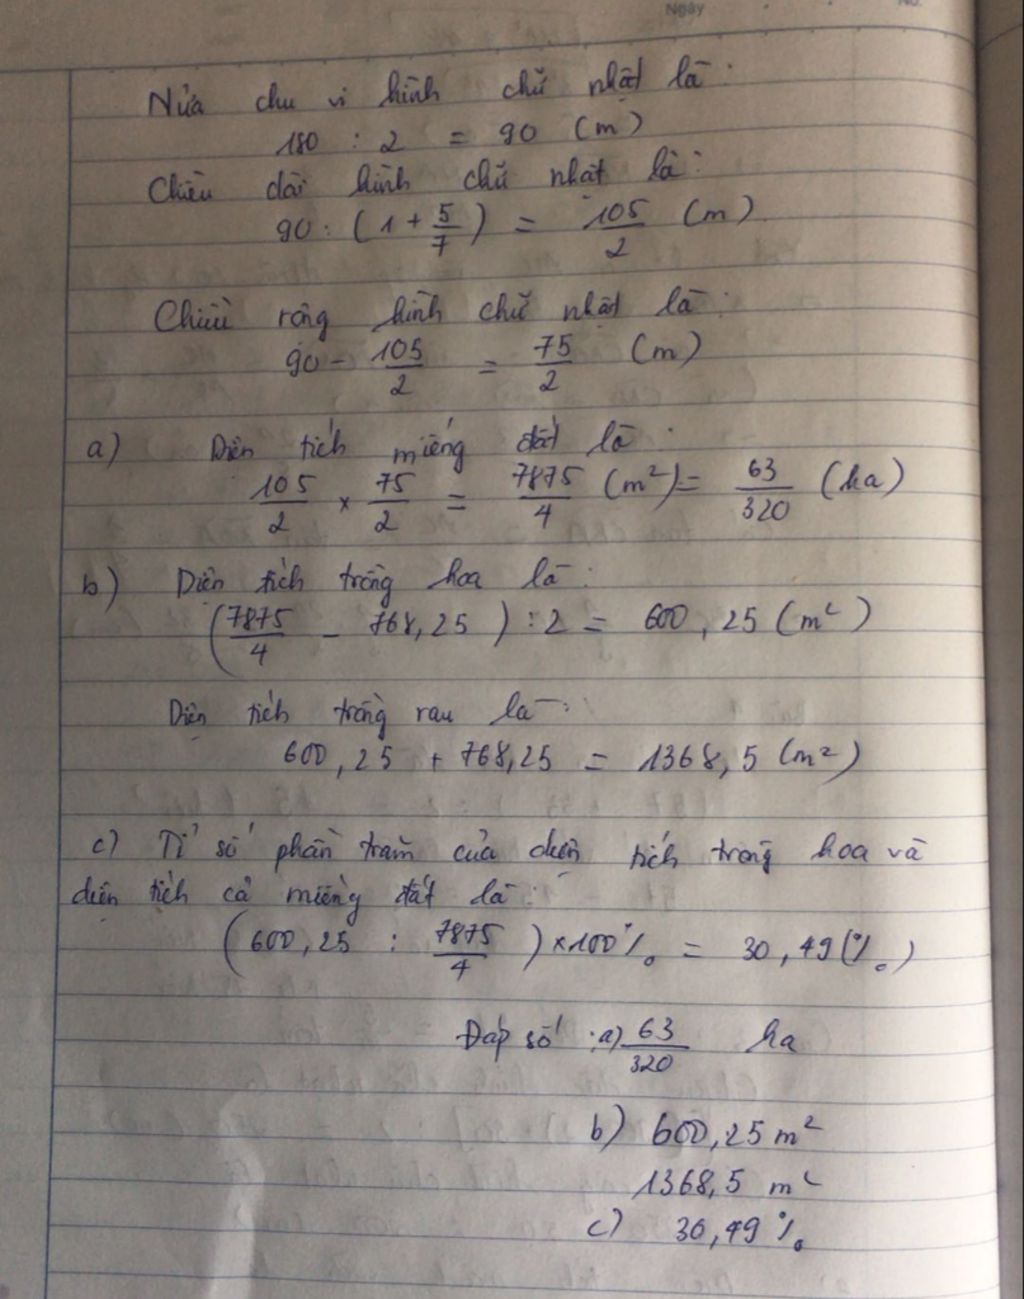 Ngày
No.
Nửa chu vi hình chữ nhật là:
180 : 2 = 90 (m)
Chiều dài hình chữ nhật là:
90 : (1 + 5/7) = 105/2 (m)
Chiều rộng hình chữ nhật là:
90 - 105/2 = 75/2 (m)
a) Diện tích miếng đất là:
105/2 x 75/2 = 7875/4 (m²) = 63/320 (ha)
b) Diện tích trồng hoa là:
(7875/4 - 768,25) : 2 = 600,25 (m²)
Diện tích trồng rau là:
600,25 + 768,25 = 1368,5 (m²)
c) Tỉ số phần trăm của diện tích trồng hoa và
diện tích cả miếng đất là:
(600,25 : 7875/4) x 100% = 30,49 (%)
Đáp số : a) 63/320 ha
b) 600,25 m²
1368,5 m²
c) 30,49 %